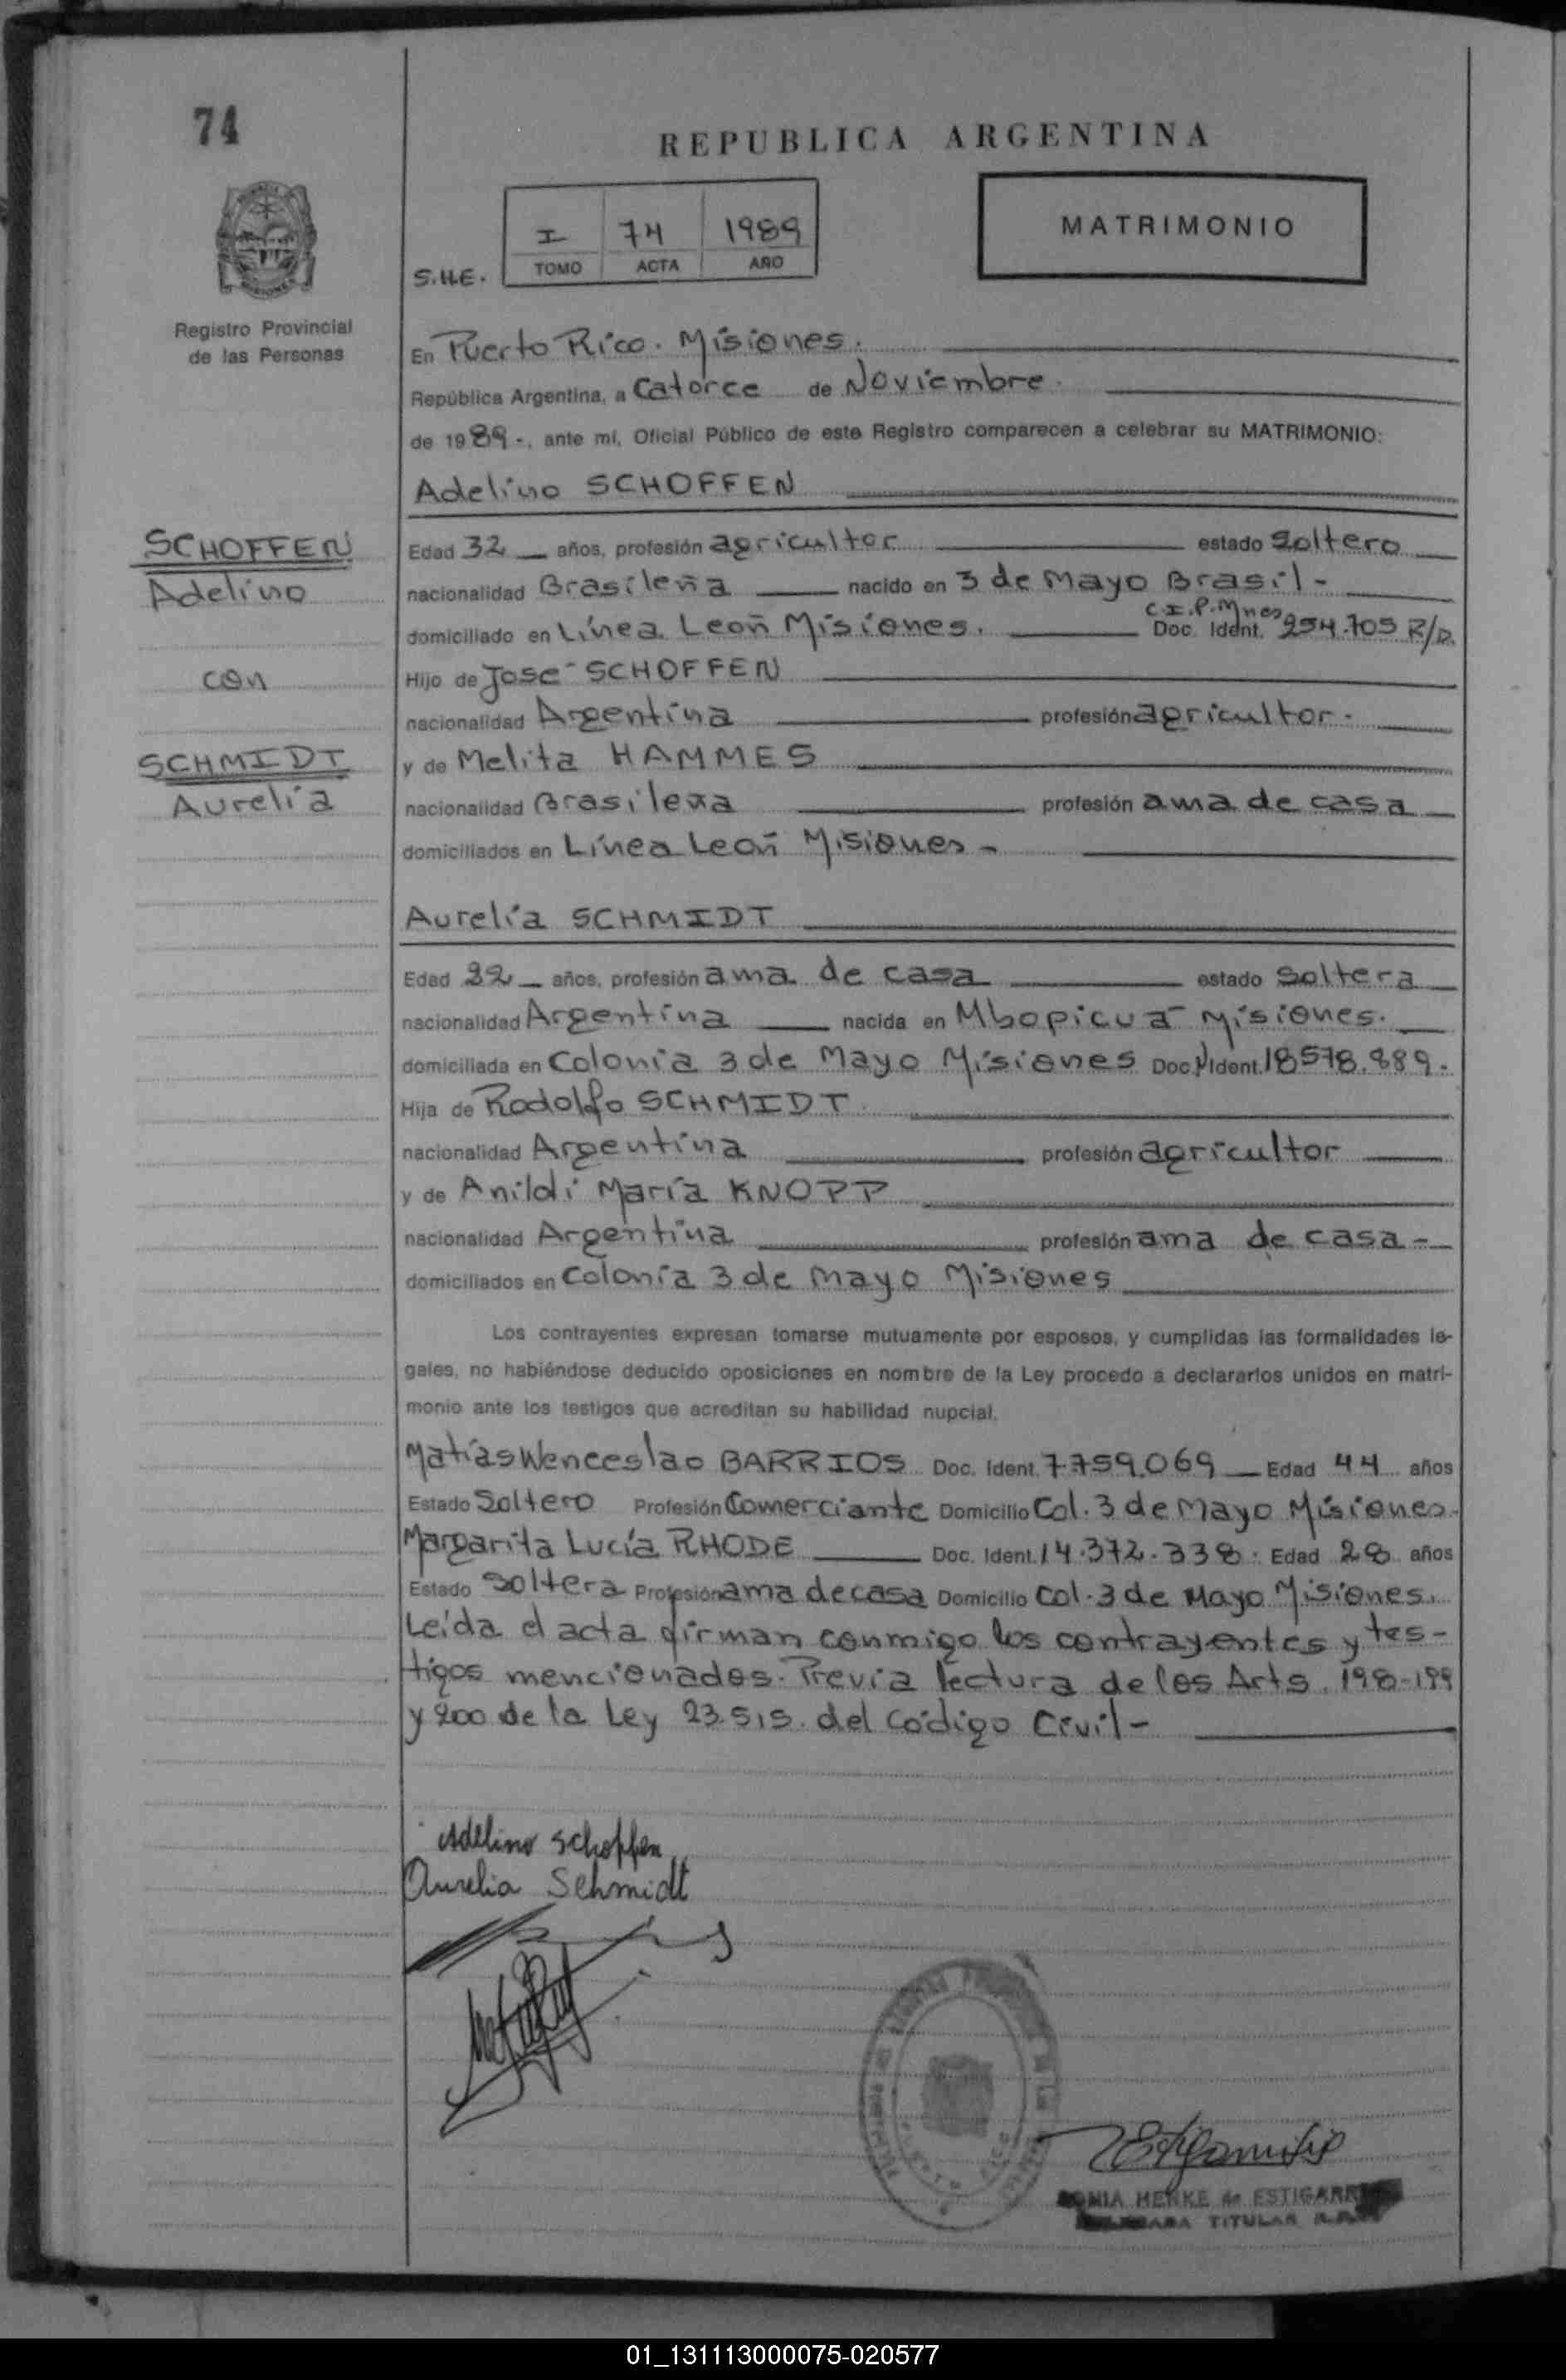 74
REPUBLICA ARGENTINA
MATRIMONIO
I 74 1989
S.H.E. TOMO ACTA AÑO
Registro Provincial
de las Personas
En Puerto Rico. Misiones.
República Argentina, a Catorce de Noviembre.
de 1989-, ante mí, Oficial Público de este Registro comparecen a celebrar su MATRIMONIO:
Adelino SCHOFFEN
SCHOFFEN
Adelino
con
SCHMIDT
Aurelia
Edad 32 años, profesión agricultor estado Soltero
nacionalidad Brasileña nacido en 3 de Mayo Brasil-
domiciliado en Línea León Misiones. C.I.P.Mnes Doc. Ident. 254.705 R/P.
Hijo de José SCHOFFEN
nacionalidad Argentina profesión agricultor.
y de Melita HAMMES
nacionalidad Brasileña profesión ama de casa
domiciliados en Línea León Misiones-
Aurelia SCHMIDT
Edad 22 años, profesión ama de casa estado Soltera
nacionalidad Argentina nacida en Mbopicuá Misiones.
domiciliada en Colonia 3 de Mayo Misiones Doc. N Ident. 18578.889.
Hija de Rodolfo SCHMIDT
nacionalidad Argentina profesión agricultor
y de Anildi María KNOPP
nacionalidad Argentina profesión ama de casa-
domiciliados en Colonia 3 de Mayo Misiones
Los contrayentes expresan tomarse mutuamente por esposos, y cumplidas las formalidades le-
gales, no habiéndose deducido oposiciones en nombre de la Ley procedo a declararlos unidos en matri-
monio ante los testigos que acreditan su habilidad nupcial.
Matías Wenceslao BARRIOS Doc. Ident. 7.759.069 Edad 44 años
Estado Soltero Profesión Comerciante Domicilio Col. 3 de Mayo Misiones.
Margarita Lucía RHODE Doc. Ident. 14.372.338. Edad 28 años
Estado Soltera Profesión ama de casa Domicilio Col. 3 de Mayo Misiones.
Leída el acta firman conmigo los contrayentes y tes-
tigos mencionados. Previa lectura de los Arts. 198-199
y 200 de la Ley 23.515. del Código Civil-
Adelino Schoffen
Aurelia Schmidt
SONIA HENKE de ESTIGARR
TITULAR
01_131113000075-020577